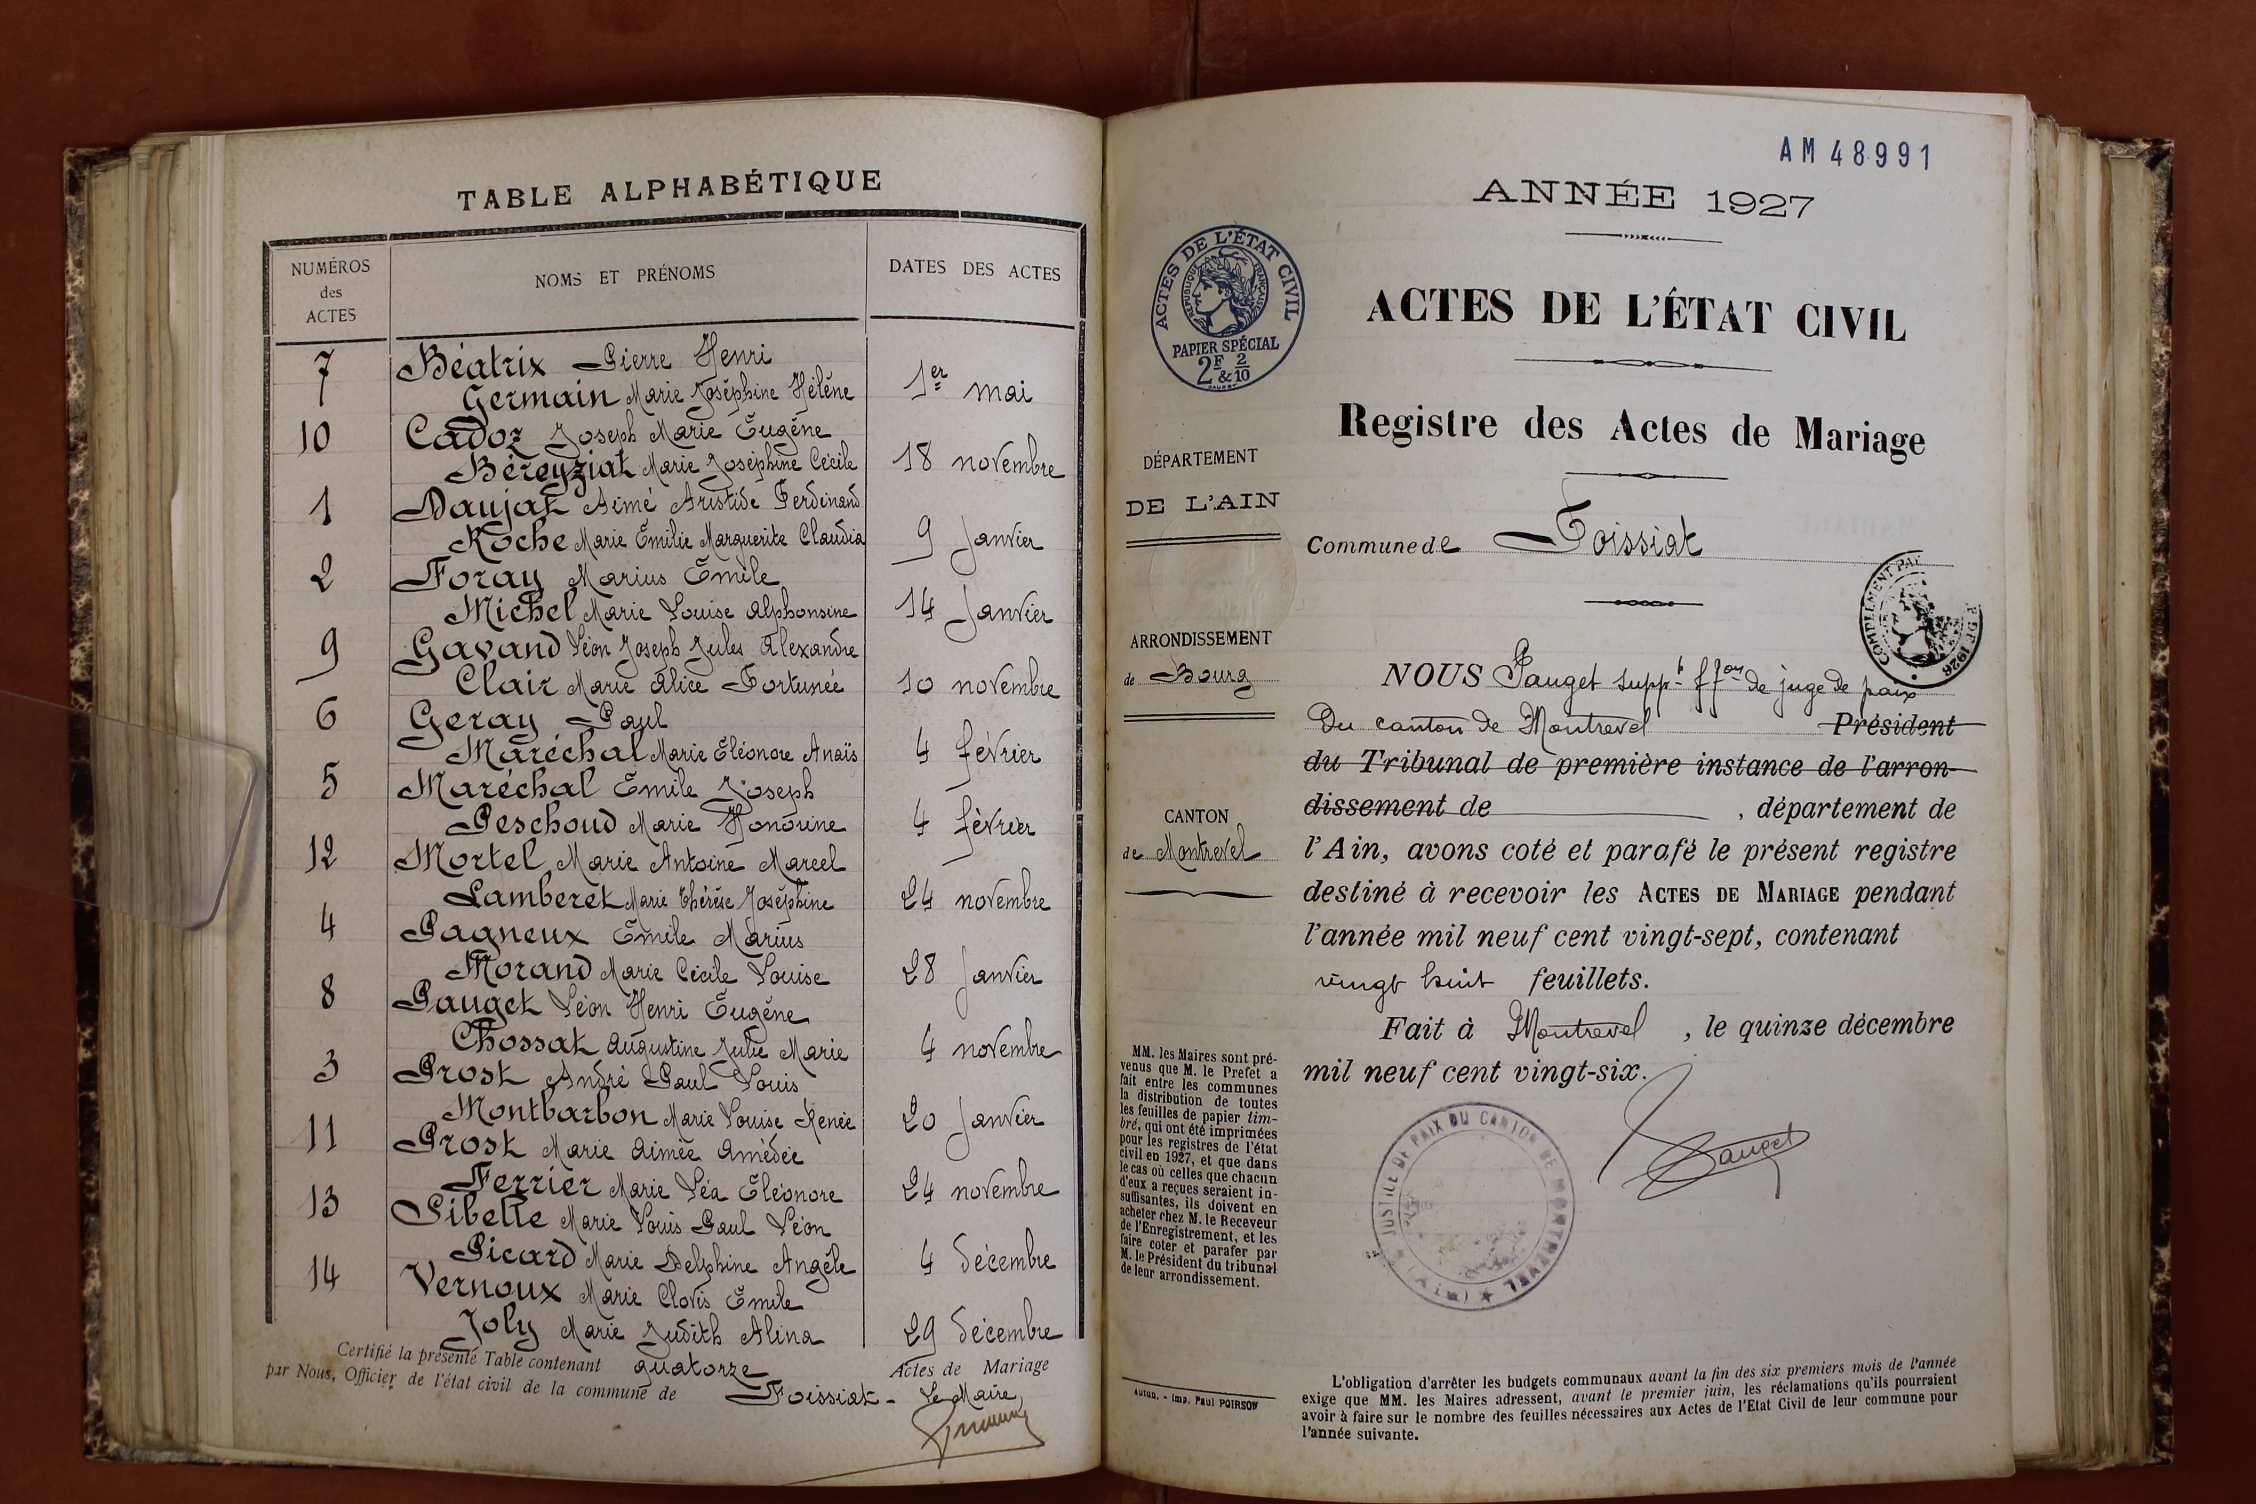 TABLE ALPHABÉTIQUE
NUMÉROS
des
ACTES
NOMS ET PRÉNOMS
DATES DES ACTES
7 Béatrix Pierre Henri
Germain Marie Joséphine Hélène 1er mai
10 Cadoz Joseph Marie Eugène
Béreyziat Marie Joséphine Cécile 18 novembre
1 Daujat Aimé Aristide Ferdinand
Roche Marie Emilie Marguerite Claudia 9 Janvier
2 Foray Marius Emile
Michel Marie Louise Alphonsine 14 Janvier
9 Gavand Léon Joseph Jules Alexandre
Clair Marie Alice Fortunée 10 novembre
6 Geray Paul
Maréchal Marie Eléonore Anaïs 4 février
5 Maréchal Emile Joseph
Peschoud Marie Honorine 4 février
12 Mortel Marie Antoine Marcel
Lamberet Marie Thérèse Joséphine 24 novembre
4 Pagneux Emile Marius
Morand Marie Cécile Louise 28 Janvier
8 Pauget Léon Henri Eugène
Chossat Augustine Julie Marie 4 novembre
3 Prost André Paul Louis
Montbarbon Marie Louise Renée 20 Janvier
11 Prost Marie Aimée Amédée
Ferrier Marie Léa Eléonore 24 novembre
13 Sibelle Marie Louis Paul Léon
Picard Marie Delphine Angèle 4 décembre
14 Vernoux Marie Clovis Emile
Joly Marie Judith Alina 29 décembre
Certifié la présente Table contenant quatorze Actes de Mariage
par Nous, Officier de l'état civil de la commune de Foissiat - Le Maire
AM 48991
ANNÉE 1927
ACTES DE L'ÉTAT CIVIL
RÉPUBLIQUE FRANÇAISE
PAPIER SPÉCIAL
2F & 2/10
ACTES DE L'ÉTAT CIVIL
Registre des Actes de Mariage
DÉPARTEMENT
DE L'AIN
Commune de Foissiat
COMPLÉMENT
DE 1926
ARRONDISSEMENT
de Bourg
CANTON
de Montrevel
NOUS Pauget suppt ffon de juge de paix
Du canton de Montrevel Président
du Tribunal de première instance de l'arron-
dissement de , département de
l'Ain, avons coté et parafé le présent registre
destiné à recevoir les ACTES DE MARIAGE pendant
l'année mil neuf cent vingt-sept, contenant
vingt huit feuillets.
Fait à Montrevel , le quinze décembre
mil neuf cent vingt-six.
Pauget
JUSTICE DE PAIX DU CANTON DE MONTREVEL (AIN)
MM. les Maires sont pré-
venus que M. le Préfet a
fait entre les communes
la distribution de toutes
les feuilles de papier tim-
bré, qui ont été imprimées
pour les registres de l'état
civil en 1927, et que dans
le cas où celles que chacun
d'eux a reçues seraient in-
suffisantes, ils doivent en
acheter chez M. le Receveur
de l'Enregistrement, et les
faire coter et parafer par
M. le Président du tribunal
de leur arrondissement.
Autun. - Imp. Paul POIRSON
L'obligation d'arrêter les budgets communaux avant la fin des six premiers mois de l'année
exige que MM. les Maires adressent, avant le premier juin, les réclamations qu'ils pourraient
avoir à faire sur le nombre des feuilles nécessaires aux Actes de l'Etat Civil de leur commune pour
l'année suivante.